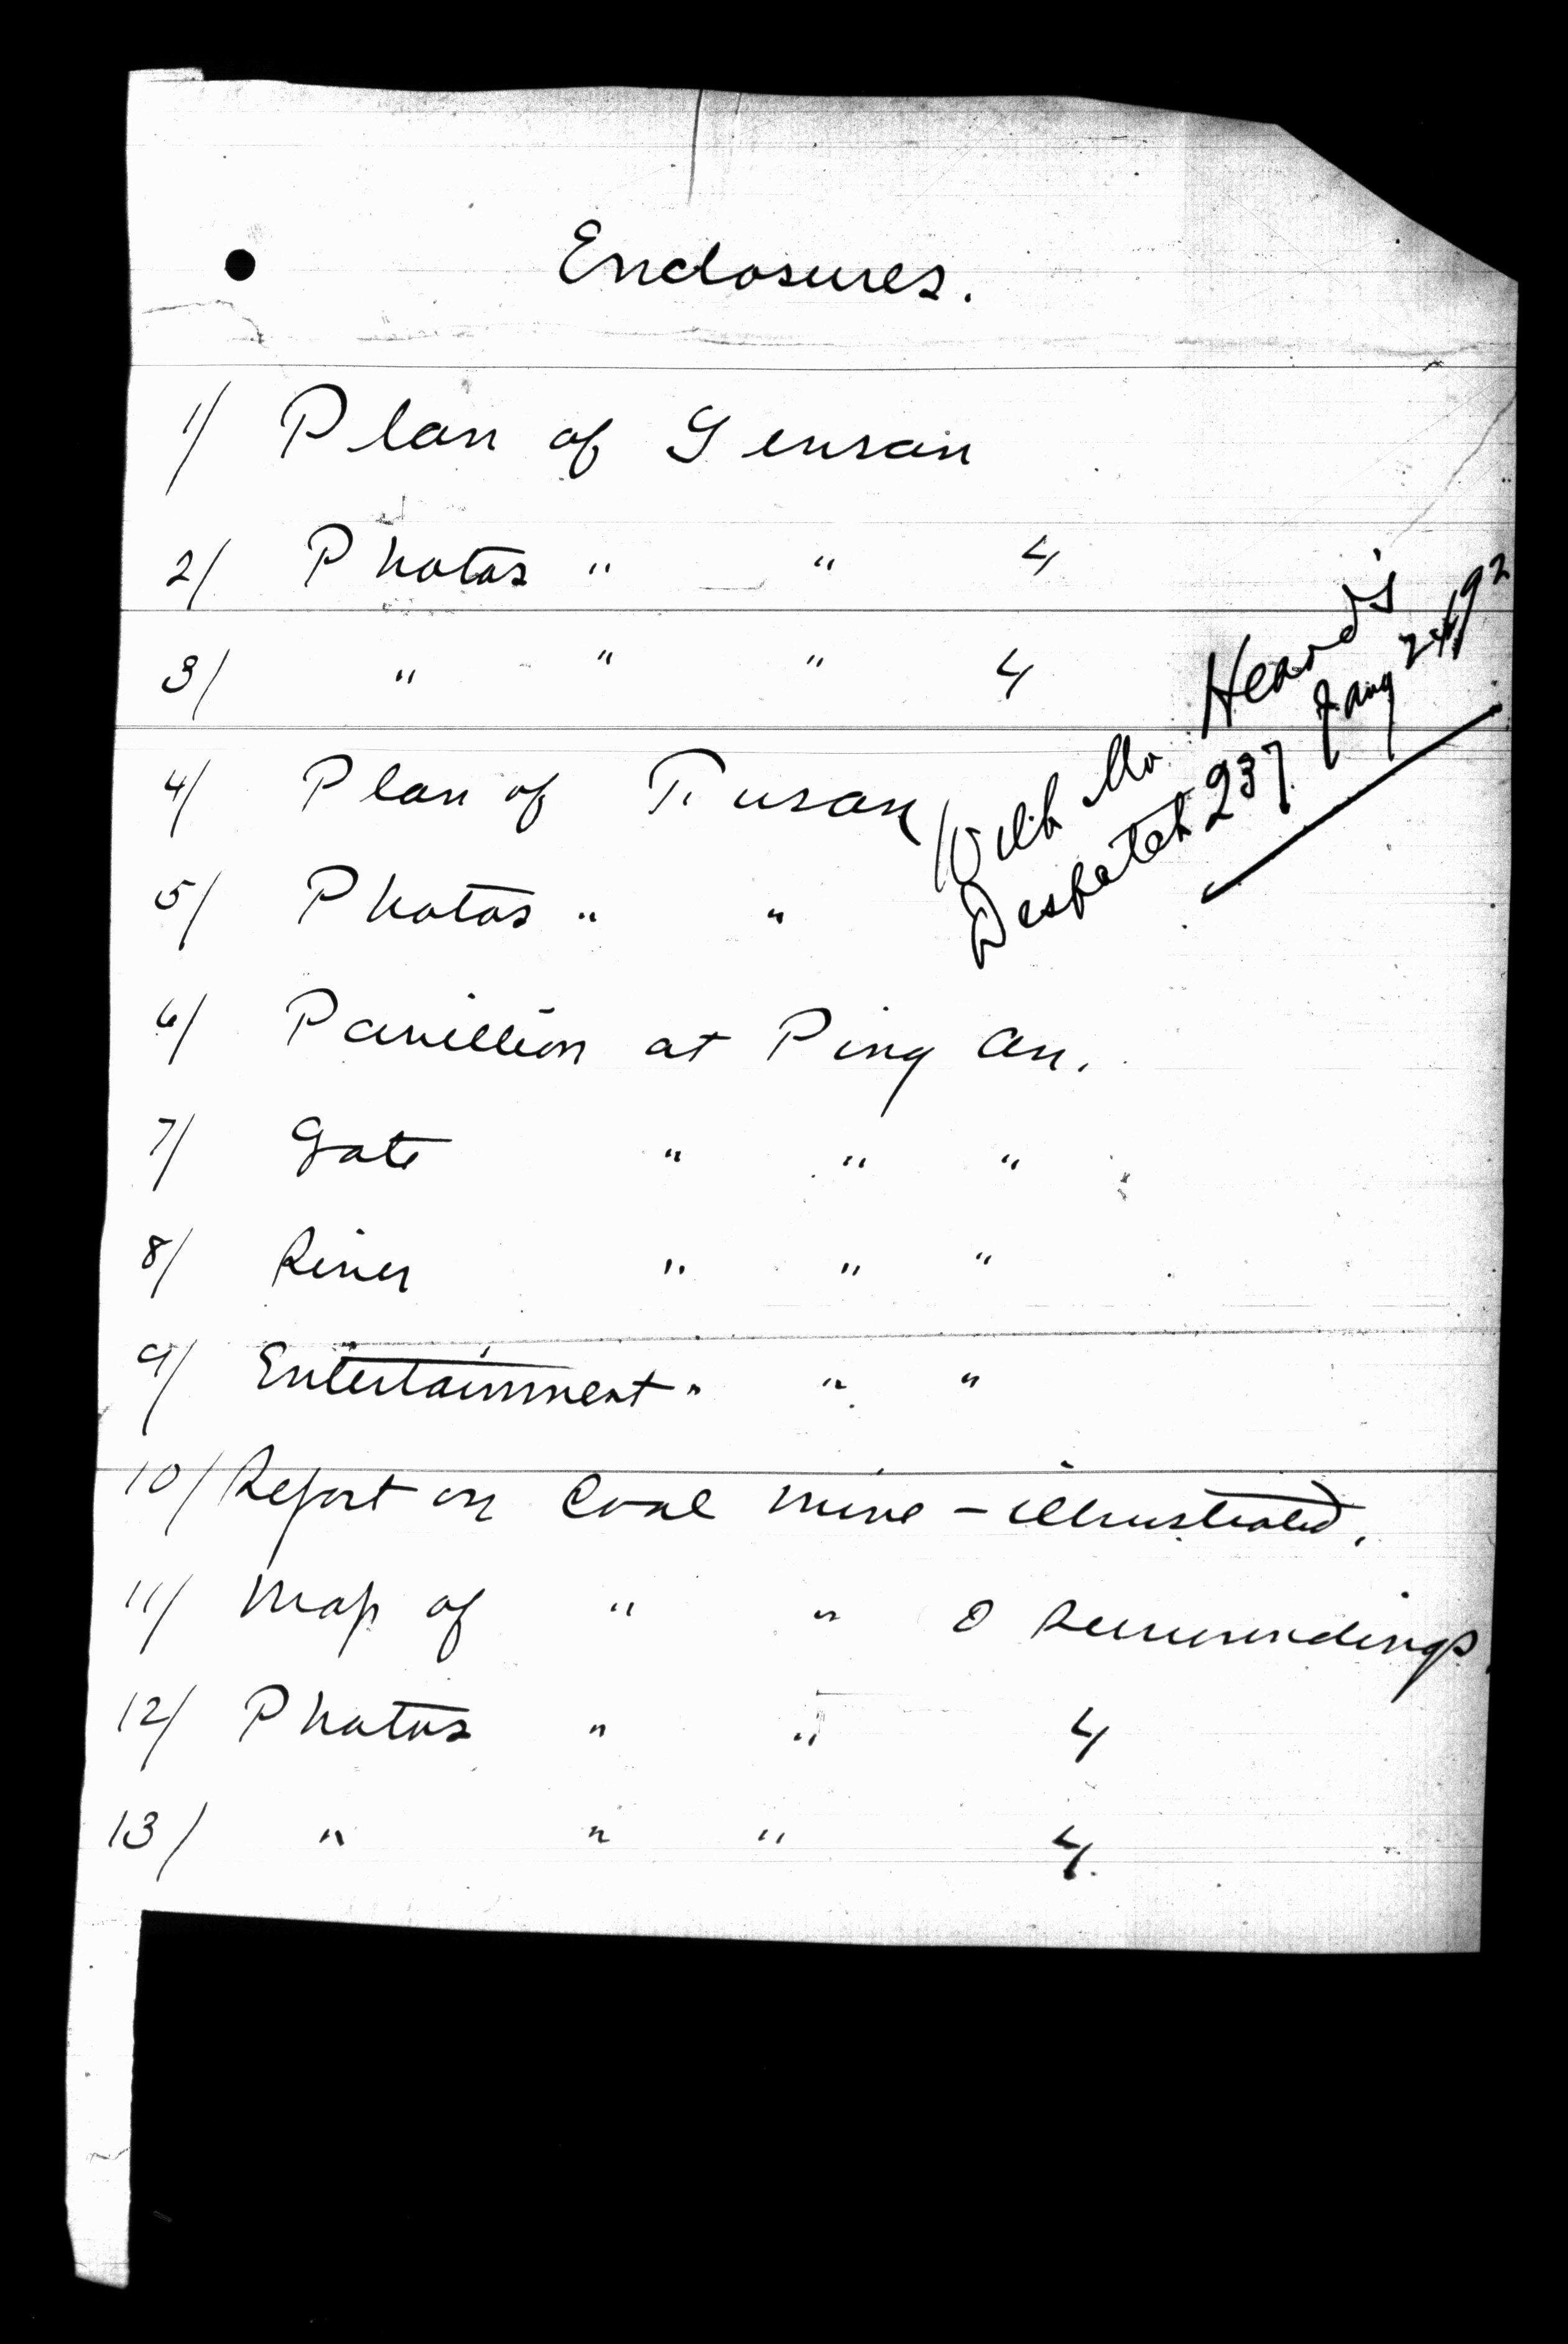 Enclosures.
1/ Plan of Gensan
2/ Photos " " 4
3/ " " " 4
4/ Plan of Fusan
5/ Photos " "
With Mr Heard's
Despatch 237 Jany 24/92
6/ Pavillion at Ping an.
7/ Gate " " "
8/ River " " "
9/ Entertainment " " "
10/ Report on Coal mine - illustrated.
11/ Map of " " & surroundings.
12/ Photos " " 4
13/ " " " 4.